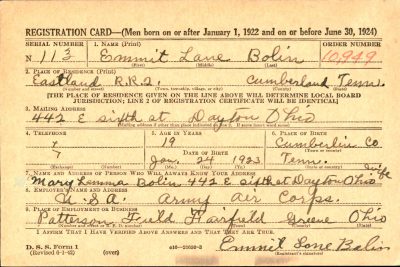 REGISTRATION CARD—(Men born on or after January 1, 1922 and on or before June 30, 1924)
SERIAL NUMBER 1. NAME (Print) ORDER NUMBER
N 113 Emmit Lane Bolin 10,949
(First) (Middle) (Last)
2. PLACE OF RESIDENCE (Print)
Eastland R.R.2. Cumberland Tenn.
(Number and street) (Town, township, village, or city) (County) (State)
[THE PLACE OF RESIDENCE GIVEN ON THE LINE ABOVE WILL DETERMINE LOCAL BOARD
JURISDICTION; LINE 2 OF REGISTRATION CERTIFICATE WILL BE IDENTICAL]
3. MAILING ADDRESS
442 E sixth st. Dayton Ohio
4. TELEPHONE 5. AGE IN YEARS 6. PLACE OF BIRTH
19 Cumberlin Co
DATE OF BIRTH (Town or county)
Jan. 24 1923 Tenn.
(Exchange) (Number) (Mo.) (Day) (Yr.) (State or country)
7. NAME AND ADDRESS OF PERSON WHO WILL ALWAYS KNOW YOUR ADDRESS
Mary Bolin 442 E sixth st Dayton Ohio
8. EMPLOYER'S NAME AND ADDRESS
U.S.A. Army Air Corps.
9. PLACE OF EMPLOYMENT OR BUSINESS
Patterson Field Fairfield Greene Ohio
I AFFIRM THAT I HAVE VERIFIED ABOVE ANSWERS AND THAT THEY ARE TRUE.
D. S. S. Form 1
(Revised 6-1-42) (over) Emmit Lane Bolin
(Registrant's signature)